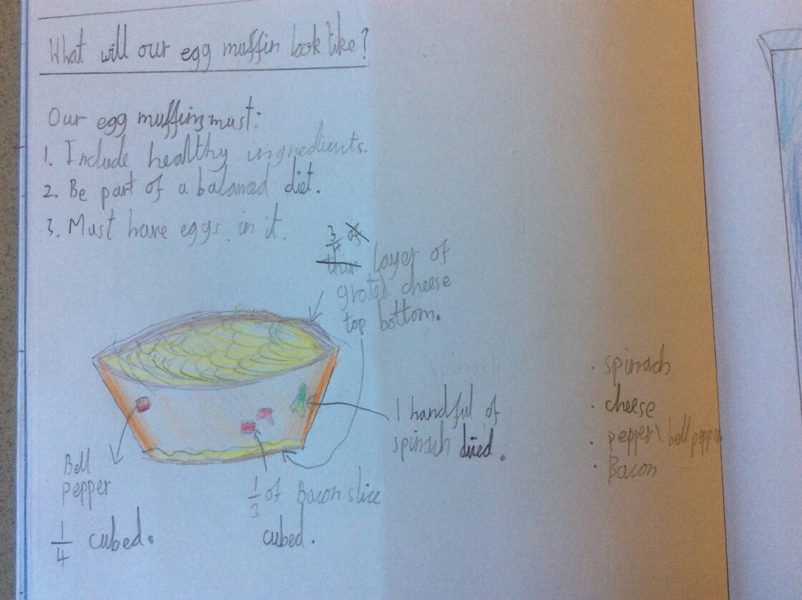 What will our egg muffin look like?
Our egg muffins must:
1. Include healthy ingredients.
2. Be part of a balanced diet.
3. Must have eggs in it.
layer of
grated cheese
top bottom.
1 handful of
spinach dried.
Bell
pepper
1/4 cubed.
1/3 of Bacon slice
cubed.
· spinach
· cheese
· pepper\ bell pepper
· Bacon